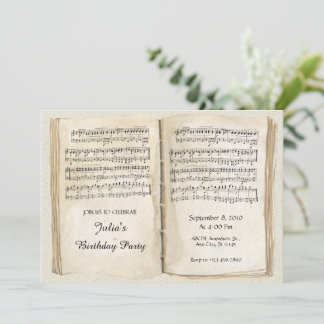 JOIN US TO CELEBRATE
Julia's
Birthday Party
September 8, 2010
At 4:00 Pm
Any City, St 12345
Rsvp to +13 456 7890